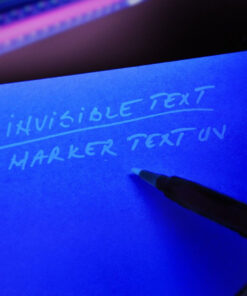 INVISIBLE TEXT
MARKER TEXT UV